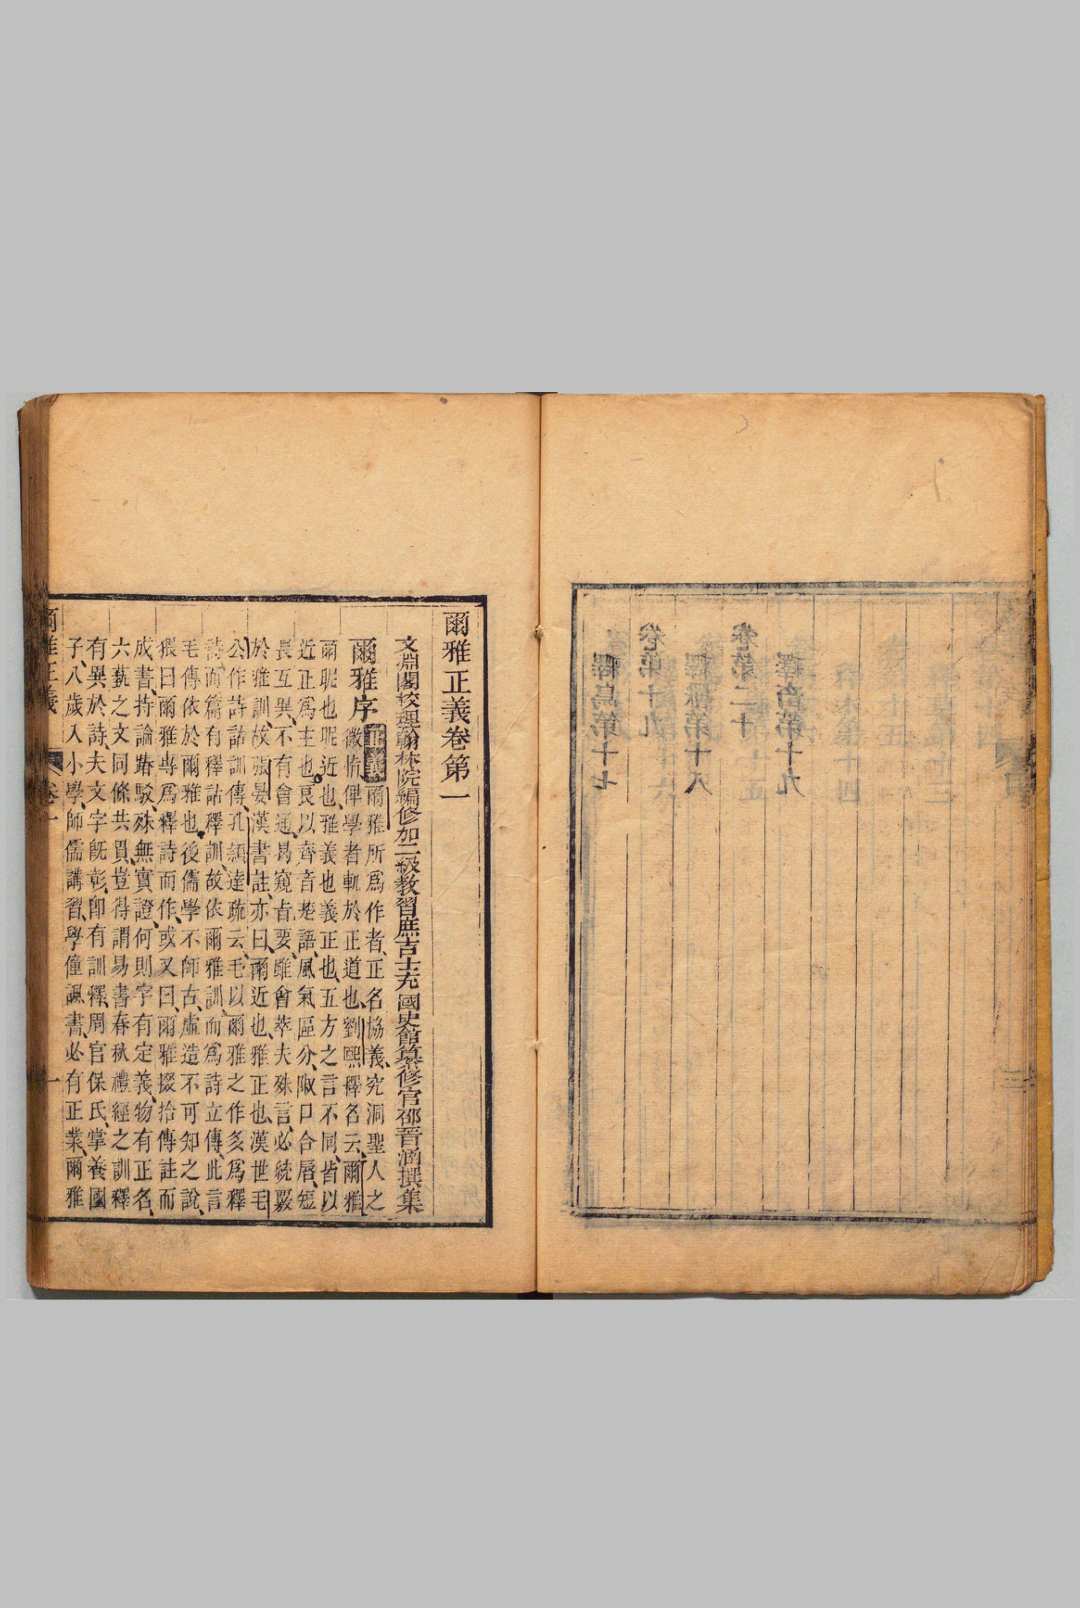 釋鳥第十七
卷第十九
釋獸第十八
卷第二十
釋畜第十九
爾雅正義卷第一
文淵閣校理翰林院編修加二級教習庶吉士充 國史館纂修官邵晉涵撰集
爾雅序 正義 爾雅所爲作者、正名協義、究洞聖人之
微恉、俾學者軌於正道也、劉熙釋名云、爾雅
爾昵也、昵近也、雅義也、義正也、五方之言不同、皆以
近正爲主也、良以齊音楚語、風氣區分、取口合唇、短
長互異、不有會通、曷窺恉要、雖會萃夫殊言、必統覈
於雅訓、故張晏漢書註、亦曰、爾近也、雅正也、漢世毛
公作詩詁訓傳、孔穎達疏云、毛以爾雅之作多爲釋
詩、而篇有釋詁釋訓、故依爾雅訓而爲詩立傳、此言
毛傳依於爾雅也、後儒學不師古、虛造不可知之說、
猥曰爾雅專爲釋詩而作、或又曰、爾雅掇拾傳註而
成書、持論踳駁、殊無實證、何則、字有定義、物有正名、
六藝之文同條共貫、豈得謂易書春秋禮經之訓釋
有異於詩、夫文字旣彰、卽有訓釋、周官保氏、掌養國
子、八歲入小學、師儒講習、學僮諷書、必有正業、爾雅
爾雅正義 卷一 一